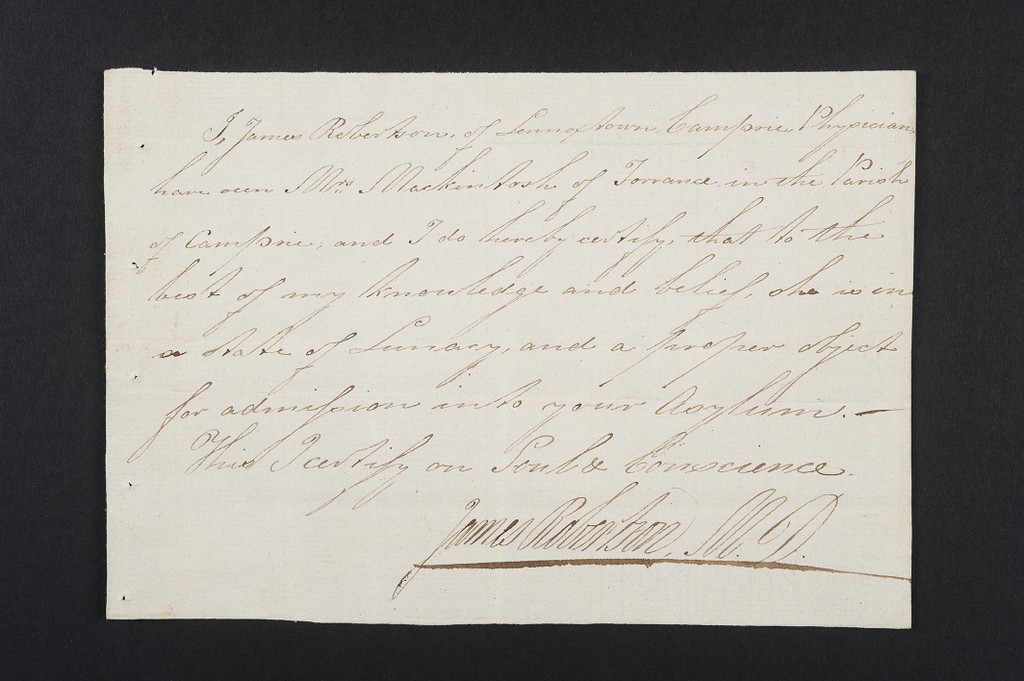 I, James Robertson, of Lennoxtown, Campsie, Physician,
have seen Mrs. Mackintosh of Torrance in the Parish
of Campsie, and I do hereby certify, that to the
best of my knowledge and belief, she is in
a state of Lunacy, and a proper object
for admission into your Asylum. —
This I certify on Soul & Conscience.
James Robertson, M.D.